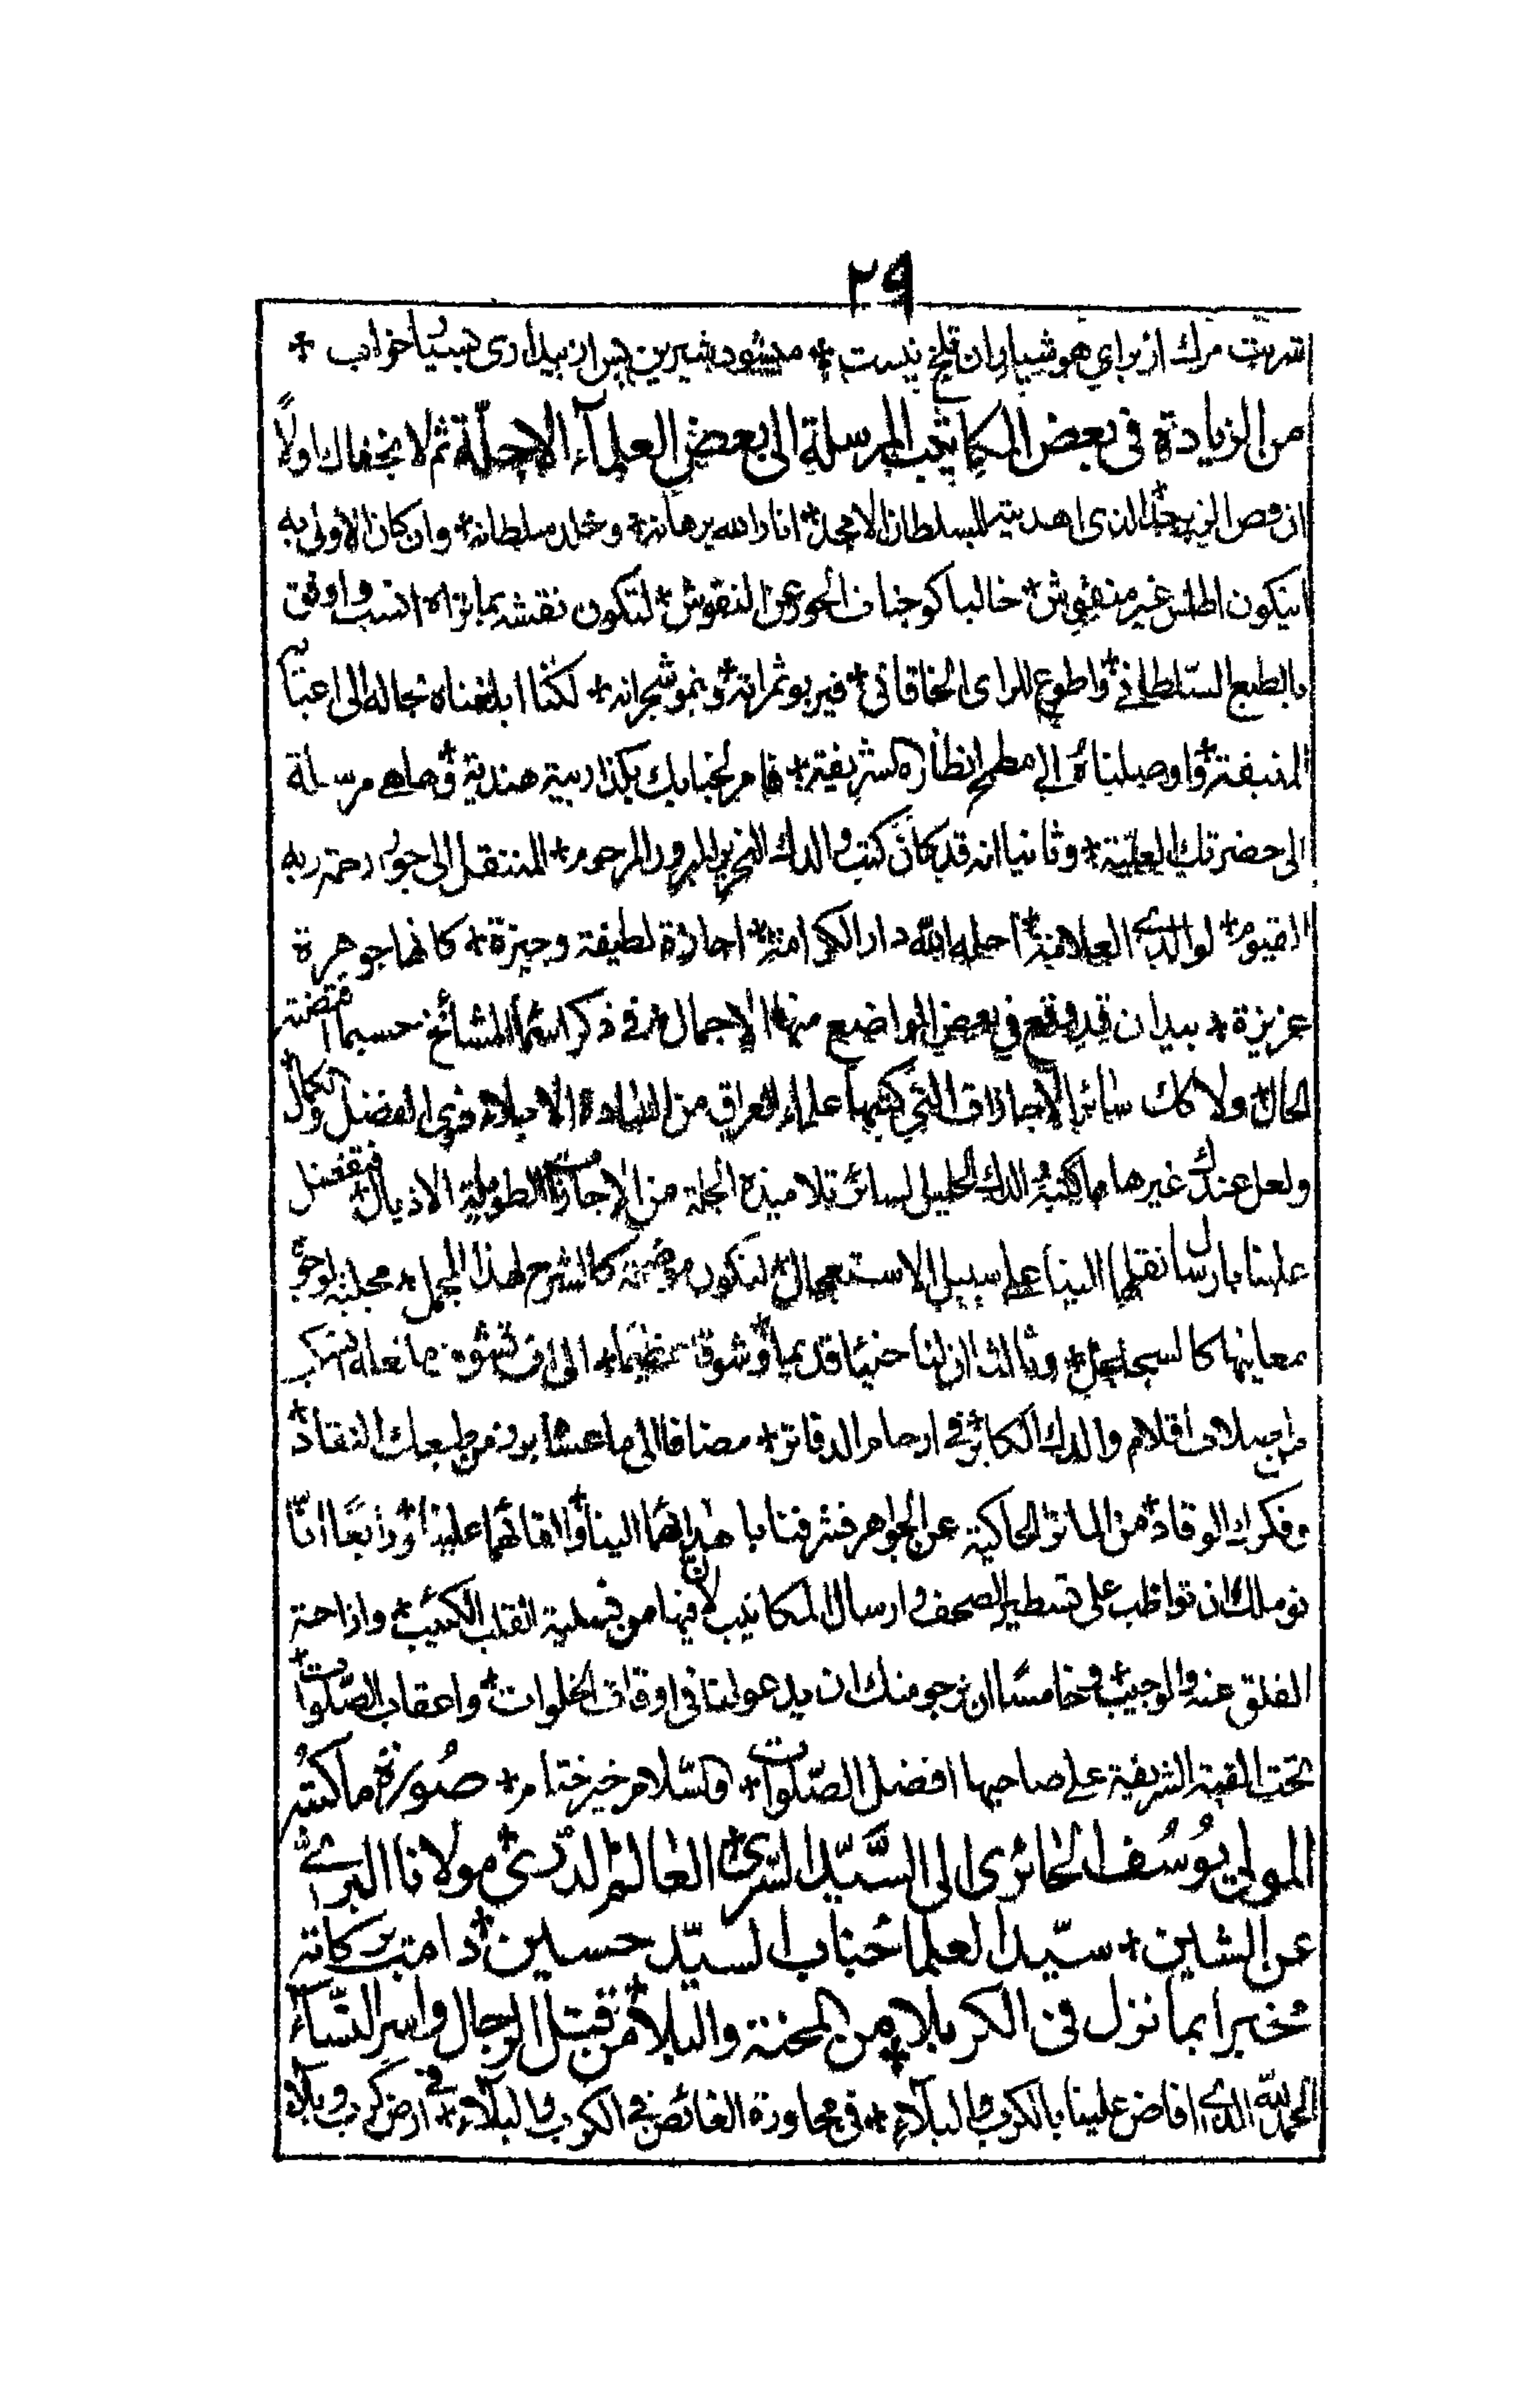 ٢٩
شربت مرك از براي هوشياران تلخ نيست * ميشود شيرين پس از بيداری بسيا خواب *
من الزيادة فی بعض المكاتيب المرسلة الی بعض العلمآء الاجلّة ثم لا يخفاك اولاً
ان فص الزبرجد الذی اهديته للسلطان الامجد * انار الله برهانه * وخلد سلطانه * وان كان الاولی به
ان يكون اطلس غير منقوش * خاليا كوجنات الحور عن النقوش * لتكون نقشه بما يراه انسب واوفق
بالطبع السّلطانے * واطوع للرای الخاقانی * فيربو ثمراته * وينمو شجراته * لكنا ابلغناه بحاله الی اعتابه
المنيفة * واوصلناه الے مطمح انظاره الشريفة * فامر لجنابك بكذا ربية هندية * وهاهے مرسلة
الی حضرتك العلية * وثانيا انه قد كان كتب والدك النحرير المبرور المرحوم * المنتقل الی جوار رحمة ربه
القيوم * لوالدی العلامة * احله الله دار الكرامة * اجازة لطيفة وجيزة * كانها جوهرة
عزيزة * بيد ان قد وقع فی بعض المواضع منها الاجمال * فی ذكر اسماء المشائخ حسبما اقتضته
الحال * ولا كك سائر الاجازات التی كتبها علماء العراق من السادة الاجلاء ذوی الفضل والكمال *
ولعل عندك غيرها مما كتبه والدك الجليل لسائر تلاميذه الجلة من الاجازات الطويلة الاذيال * فتفضل
علينا بارسال نقلها الينا علے سبيل الاستعجال * لتكون موضحة كالشرح لهذا المجمل * مجلية لوجوه
معانيها كالسجنجل * وثالثا ان لنا حنينا قديما * وشوقا عظيما * الی
من اصلاب اقلام والدك الكابر * فے ارحام الدفاتر * مضافا الی ما عسی برز من طبعك النقاد *
وفكرك الوقاد * من المآثر الحاكية عن الجواهر فشرفنا باهدائهما الينا * والقائهما علينا * ورابعًا انّا
نوملك ان تواظب علی تسطير الصحف وارسال المكاتيب لان فيها من تسلية القلب الكئيب * وازاحة
القلق عنه والوجيب * وخامسًا ان نرجو منك ان يدعو لنا فی اوقات الخلوات * واعقاب الصّلوات *
تحت القبة الشريفة علے صاحبها افضل الصّلوات * والسّلام خير ختام * صُورة ما كتبه
المولی يُوسُف الحائری الی السَّيّد السّری * العالم الدّری * مولانا البرئے
عن الشين * سيّد العلما جناب السيّد حسين * دامت بركاته
مُخبرا بما نزل فی الكربلاء من المحنة والبلاء * من قتل الرجال واسر النّساء
الحمد لله الذی افاض علينا بالكرب والبلآء * فی مجاورة الغائص فے الكرب والبلآء * فے ارض كرب وبلاء